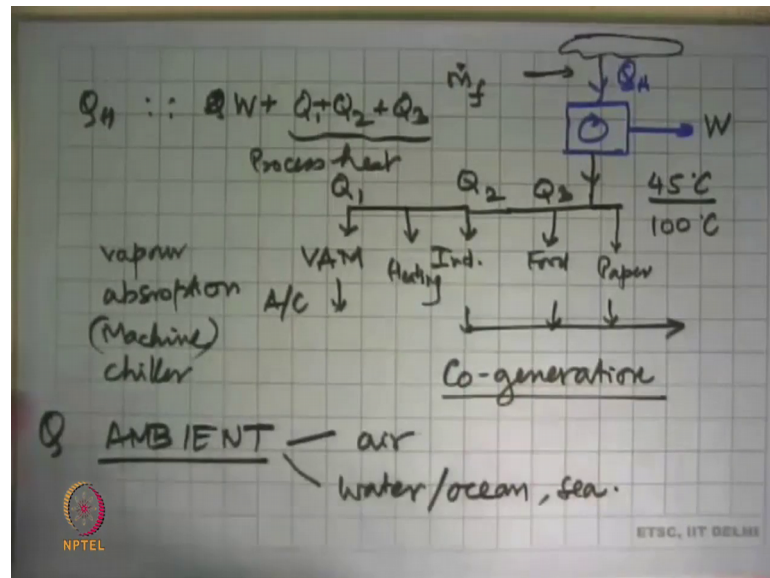 ṁf → QH
QH :: W + Q1+Q2+Q3
W
Process heat
45°C
100°C
Q1 Q2 Q3
VAM Heating Ind. Food Paper
vapour
absroption
A/C
(Machine)
chiller
Co-generation
Q AMBIENT — air
water/ocean, sea.
NPTEL
ETSC, IIT DELHI